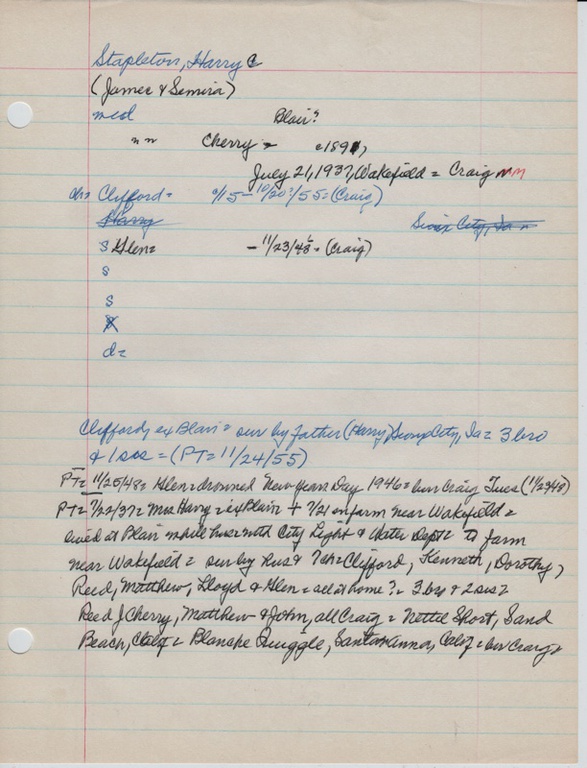 Stapleton, Harry C
(James & Semira)
med Blair?
nn Cherry = c1897
July 21, 1937, Wakefield = Craig MM
ch= Clifford = c/15 - 10/20?/55 = (Craig)
Harry Sioux City, Ia
S Glen = - 11/23/48 = (Craig)
S
S
S
d =
Clifford, ex Blair = sur by father (Harry) Sioux City, Ia = 3 bro
& 1 sis = (PT = 11/24/55)
PT = 11/25/48 = Glen = drowned New Years Day 1946 = bur Craig Tues (11/23/48)
PT = 7/22/37 = Mrs Harry = ex Blair + 7/21 on farm near Wakefield =
lived at Blair while hus with City Light & Water Dept = to farm
near Wakefield = sur by hus & 7 ch = Clifford, Kenneth, Dorothy,
Reed, Matthew, Lloyd & Glen = all at home? = 3 bro & 2 sis =
Reed J Cherry, Matthew & John, all Craig = Nettie Short, Sand
Beach, Calif = Blanche Quiggle, Santa Anna, Calif = bur Craig